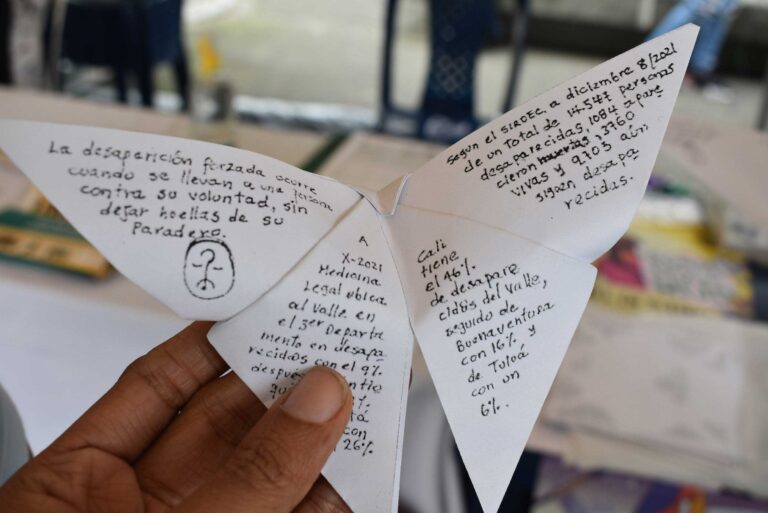 La desaperición forzada ocurre
cuando se llevan a una persona
contra su voluntad, sin
dejar huellas de su
Paradero.
Segun el SIRDEC, a diciembre 8/2021
de un Total de 14.547 personas
desaparecidas, 1084 a pare
cieron muertas, 3760
vivas y 9.703 aún
siguen desapa
recidas.
A
X-2021
Medicina
Legal ubica
al Valle en
el 3er Departa
mento en desapa
recidos con el 9%
después
con
26%.
Cali
tiene
el 46%
de desapare
cidos del Valle,
seguido de
Buenaventura
con 16% y
de Tuluá
con un
6%.